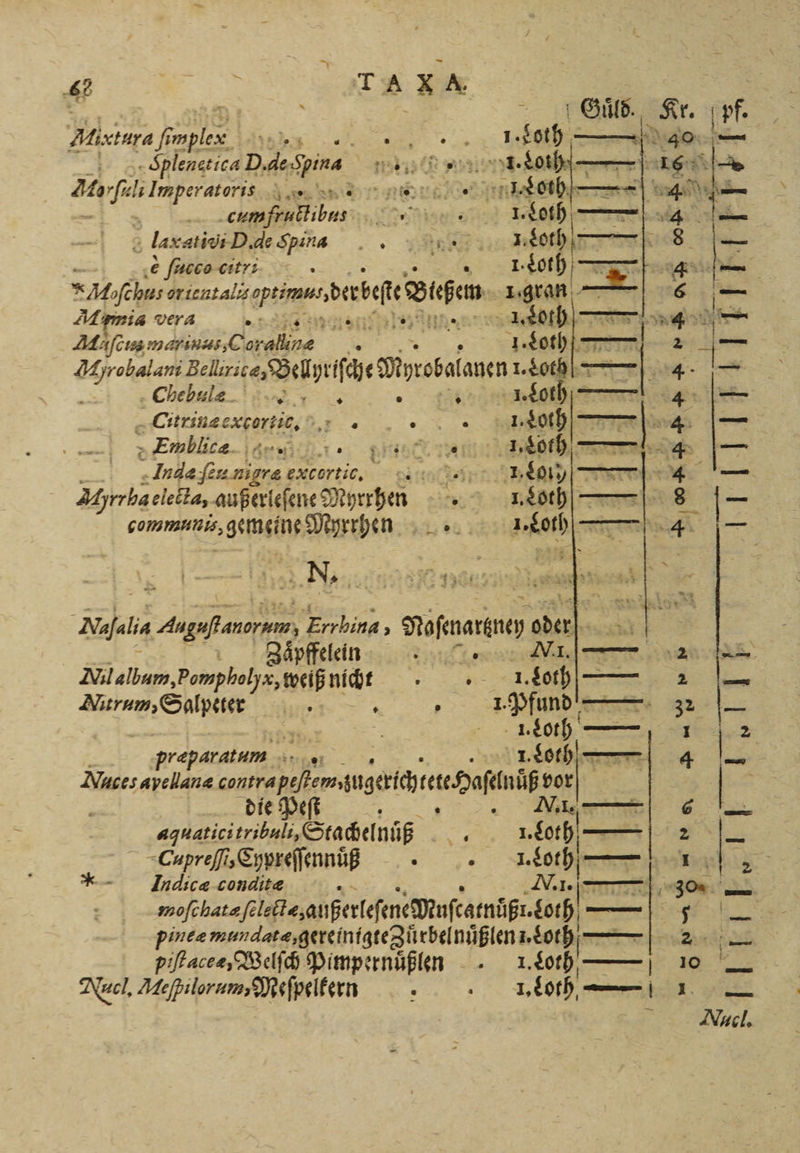 62 TAXA.
Güld. Kr. pf.
Mixtura simplex . . . . 1.Loth — 40 —
Splenetica D.de Spina . . 1.Loth — 16 —
Morsuli Imperatoris . . . . 1.Loth — 4 —
cum fructibus . . 1.Loth — 4 —
laxativi D.de Spina . . 1.Loth — 8 —
è succo citri . . . . 1.Loth — 4 —
*Moschus orientalis optimus, der beste Bisem 1.gran — 6 —
Mumia vera . . . . . 1.Loth — 4 —
Muscus marinus, Corallina . . . 1.Loth — 2 —
Myrobalani Belliricæ, Bellyrische Myrobalanen 1.Loth — 4 —
Chebulæ . . . . 1.Loth — 4 —
Citrinæ excortic. . . . 1.Loth — 4 —
Emblicæ . . . . 1.Loth — 4 —
Indæ seu nigræ excortic. . . 1.Loth — 4 —
Myrrha electa, außerlesene Myrrhen . 1.Loth — 8 —
communis, gemeine Myrrhen . 1.Loth — 4 —
N.
Nasalia Augustanorum, Errhina, Nasenartzney oder
Zäpffelein . . N.1. — 2 —
Nil album, Pompholyx, weiß nicht . . 1.Loth — 2 —
Nitrum, Salpeter . . . 1.Pfund — 32 —
1.Loth — 1 2
præparatum . . . . 1.Loth — 4 —
Nuces avellanæ contra pestem, zugerichtete Haselnuß vor
die Pest . . . N.1. — 6 —
aquatici tribuli, Stachelnuß . 1.Loth — 2 —
Cupressi, Cypressennuß . . 1.Loth — 1 2
* Indicæ conditæ . . . N.1. — 30 —
moschatæ selectæ, außerlesene Muscatnuß 1.Loth — 5 —
pineæ mundatæ, gereinigte Zürbelnüßlen 1.Loth — 2 —
pistaceæ, Welsch Pimpernüßlen . 1.Loth — 10 —
Nucl. Mespilorum, Mespelkern . . 1.Loth — 1 —
Nucl.